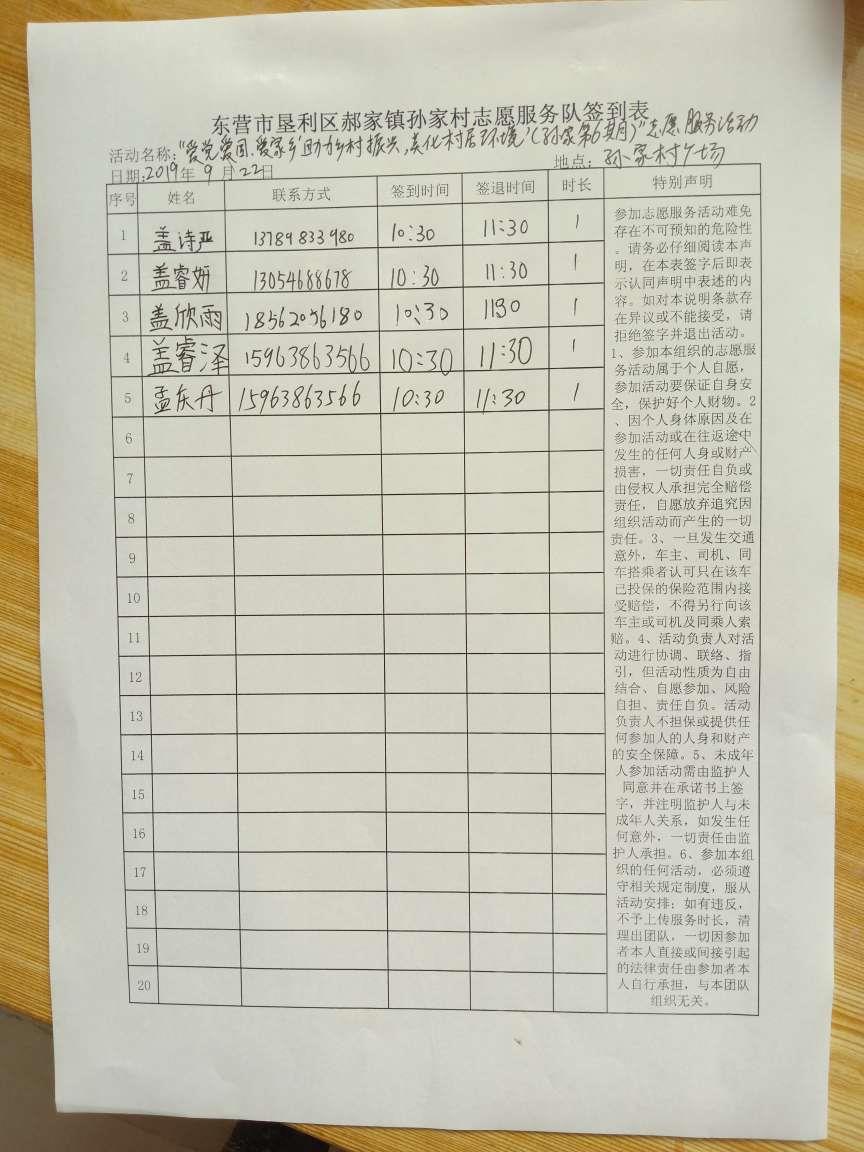 东营市垦利区郝家镇孙家村志愿服务队签到表
活动名称:“爱党爱国.爱家乡 助力乡村振兴,美化村居环境”(孙家第6期)”志愿服务活动
日期:2019年 9 月 22日 地点:孙家村广场
序号 姓名 联系方式 签到时间 签退时间 时长 特别声明
1 盖诗严 13789833980 10:30 11:30 1
2 盖睿妍 13054688678 10:30 11:30 1
3 盖欣雨 18562096180 10:30 1130 1
4 盖睿泽 15963863566 10:30 11:30 1
5 孟庆丹 15963863566 10:30 11:30 1
6
7
8
9
10
11
12
13
14
15
16
17
18
19
20
参加志愿服务活动难免
存在不可预知的危险性
。请务必仔细阅读本声
明,在本表签字后即表
示认同声明中表述的内
容。如对本说明条款存
在异议或不能接受,请
拒绝签字并退出活动。
1、参加本组织的志愿服
务活动属于个人自愿,
参加活动要保证自身安
全,保护好个人财物。2
、因个人身体原因及在
参加活动或在往返途中
发生的任何人身或财产
损害,一切责任自负或
由侵权人承担完全赔偿
责任,自愿放弃追究因
组织活动而产生的一切
责任。3、一旦发生交通
意外,车主、司机、同
车搭乘者认可只在该车
已投保的保险范围内接
受赔偿,不得另行向该
车主或司机及同乘人索
赔。4、活动负责人对活
动进行协调、联络、指
引,但活动性质为自由
结合、自愿参加、风险
自担、责任自负。活动
负责人不担保或提供任
何参加人的人身和财产
的安全保障。5、未成年
人参加活动需由监护人
同意并在承诺书上签
字,并注明监护人与未
成年人关系,如发生任
何意外,一切责任由监
护人承担。6、参加本组
织的任何活动,必须遵
守相关规定制度,服从
活动安排;如有违反,
不予上传服务时长,清
理出团队,一切因参加
者本人直接或间接引起
的法律责任由参加者本
人自行承担,与本团队
组织无关。